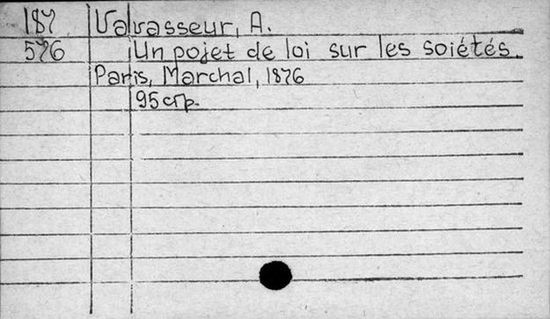 187 Valvasseur, A.
576 Un pojet de loi sur les soiétés.
Paris, Marchal, 1876
95 стр.